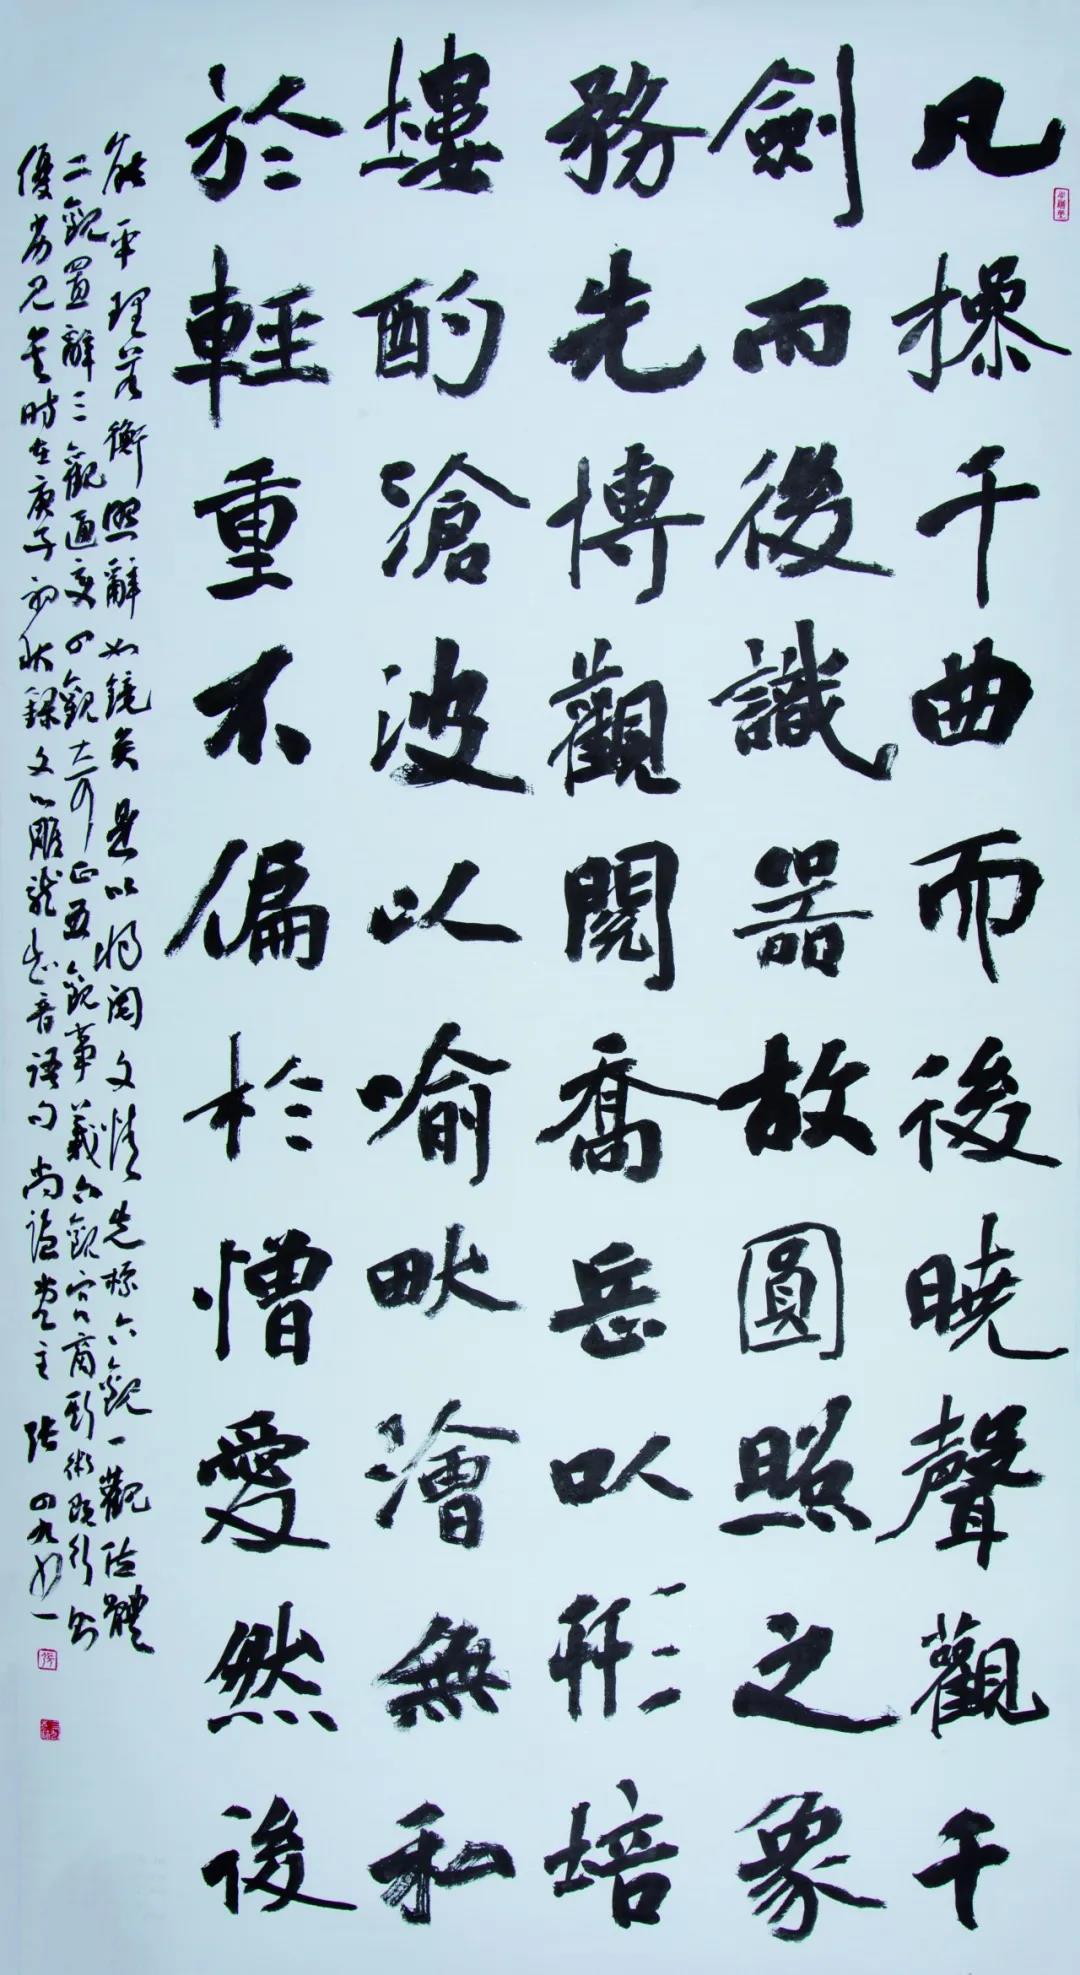 凡操千曲而後曉聲觀千
劍而後識器故圓照之象
務先博觀閱喬岳以形培
塿酌滄波以喻畎澮無私
於輕重不偏於憎愛然後
能平理若衡照辭如鏡矣是以將閱文情先標六觀一觀位體
二觀置辭三觀通變四觀奇正五觀事義六觀宮商斯術既行則
優劣見矣時在庚子初秋錄文心雕龍知音語句尚堂主張四九